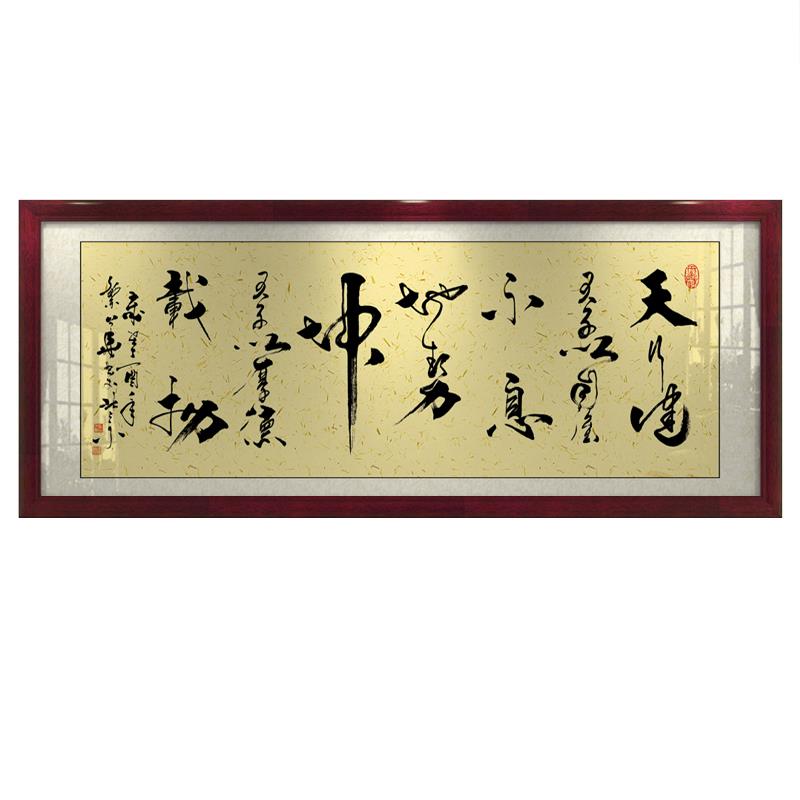 天行健
君子以自强
不息
地势
坤
君子以厚德
载物